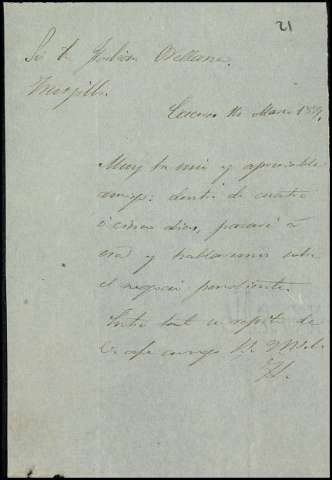 12
Sr. Dn. Julian Orellana.
Trujillo.
Cáceres 16 Marzo
Muy Sr. mio y apreciable
amigo: dentro de cuatro
ó cinco dias, pasaré á
esa y hablaremos sobre
el negocio pendiente.
Entre tanto se repite de
V. afmo amigo